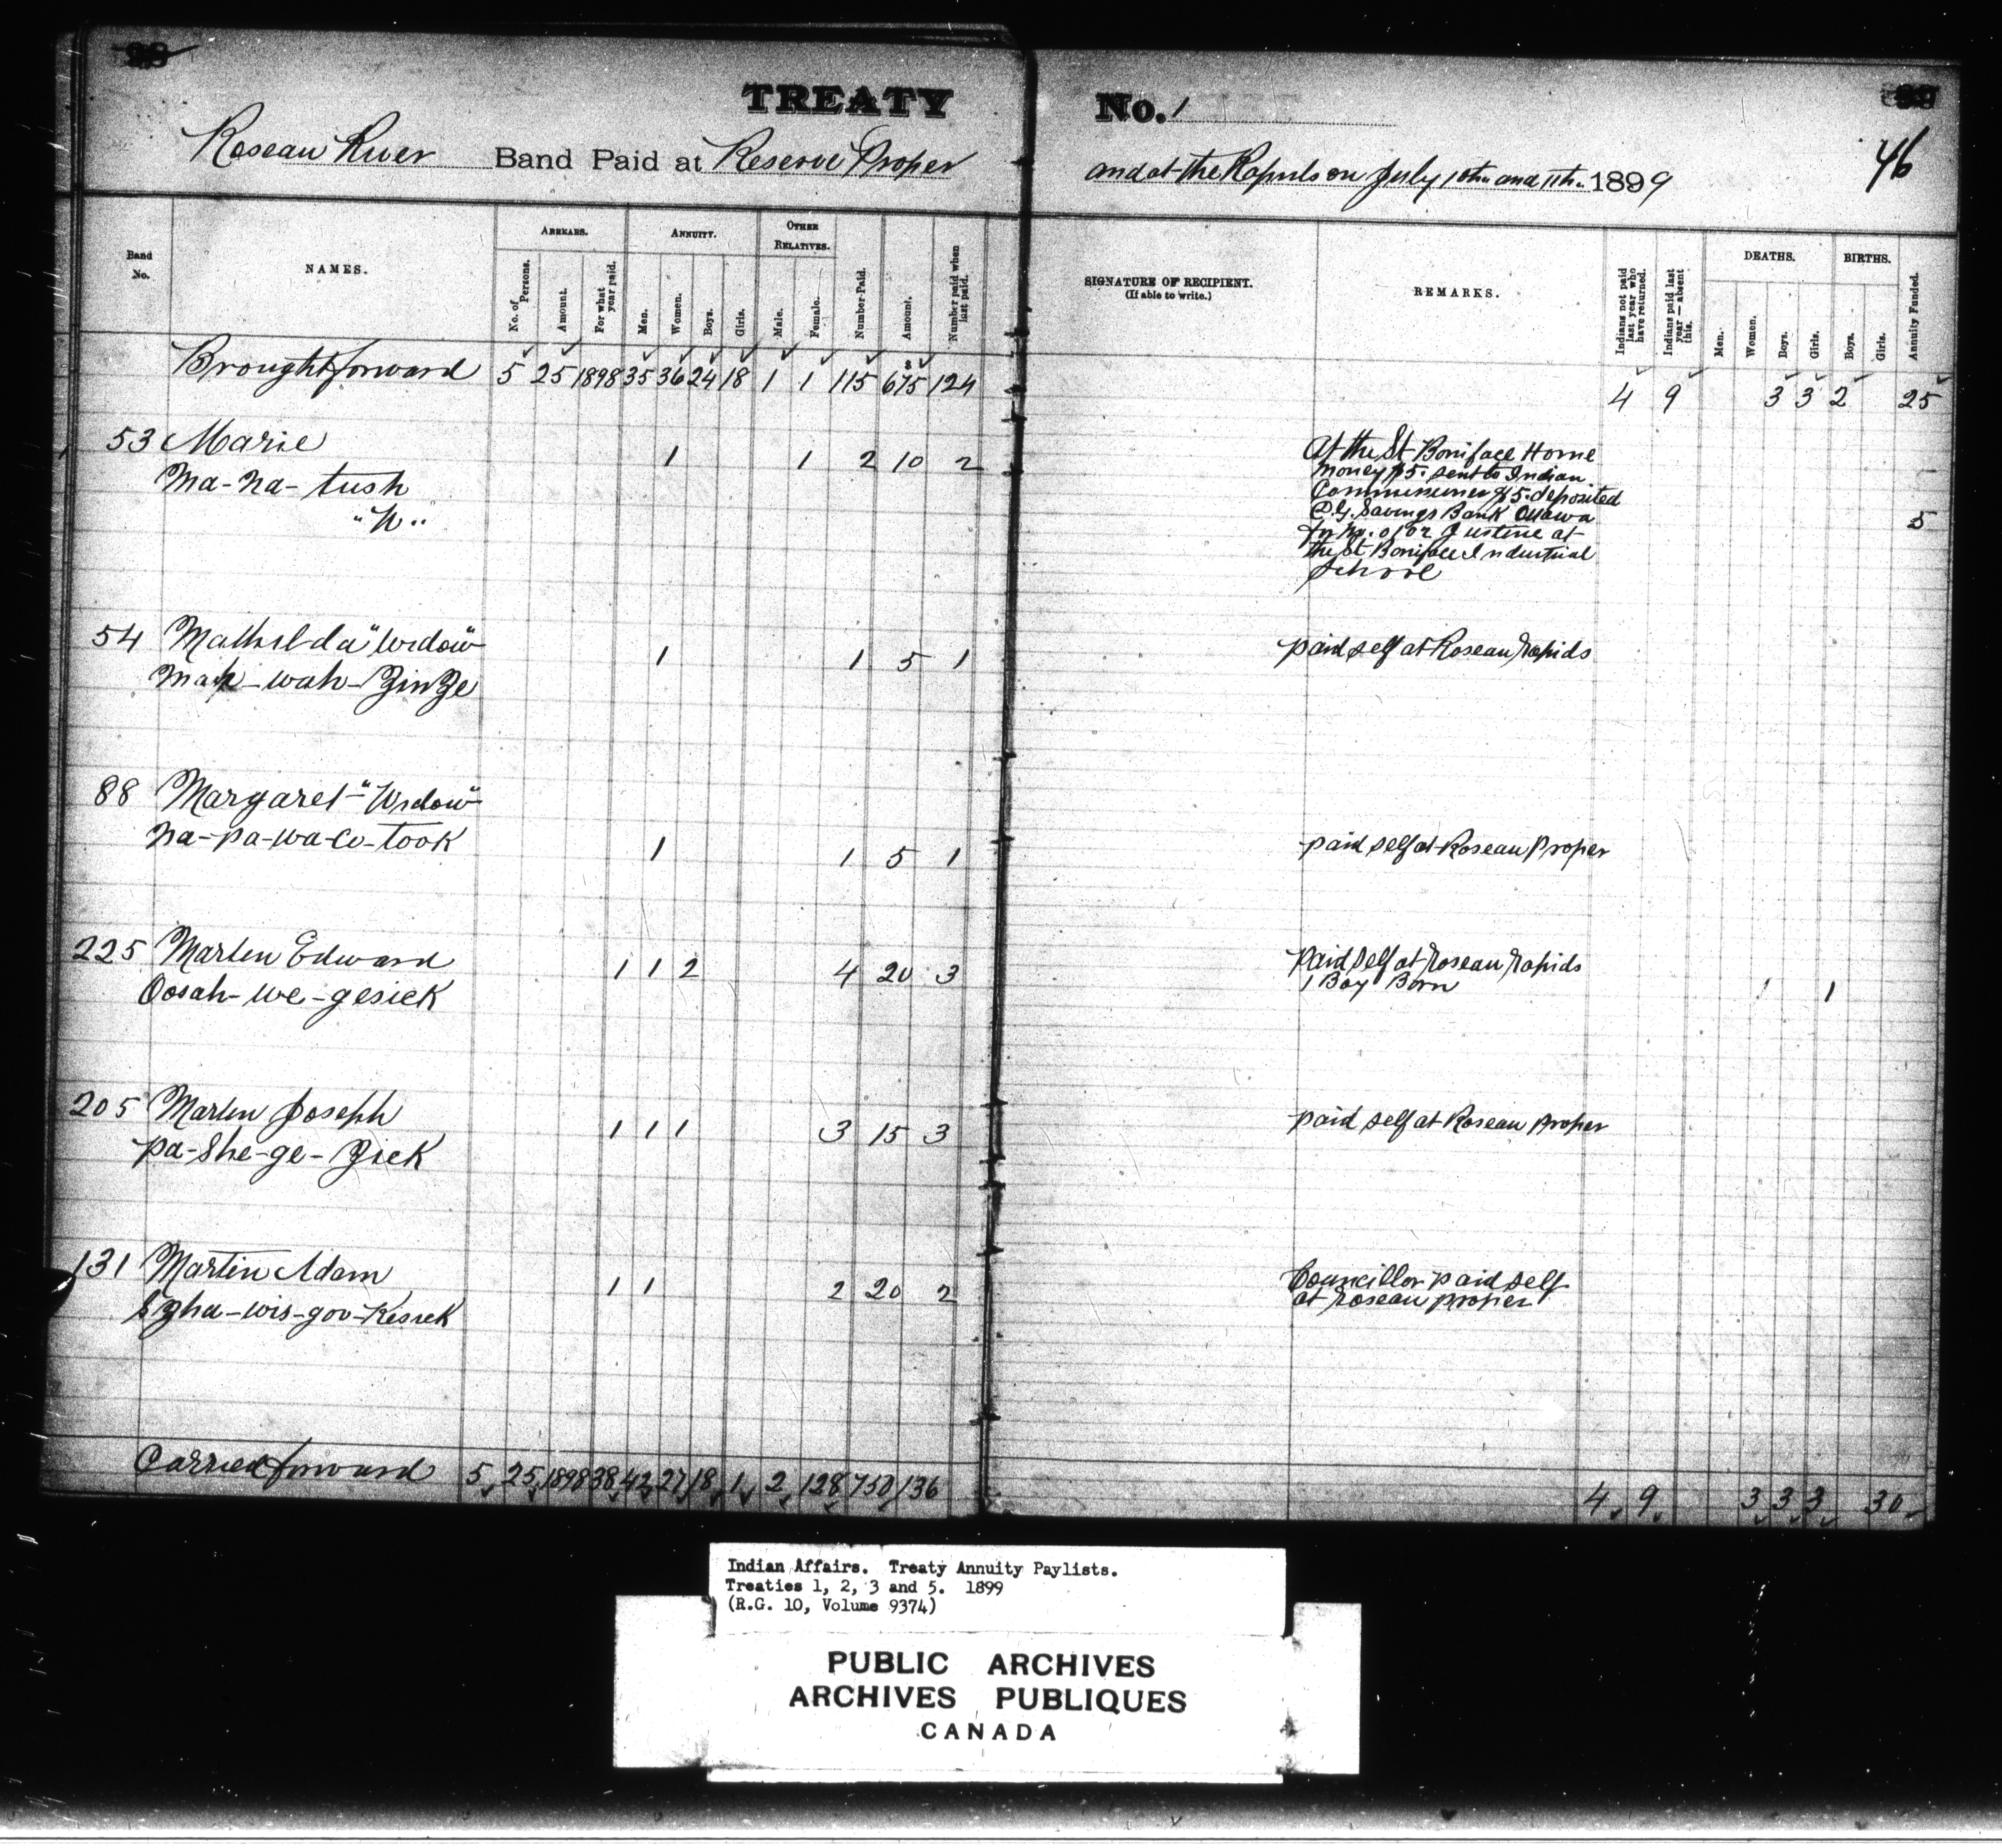 TREATY No. 1
46
Roseau River Band Paid at Reserve Proper and at the Rapids on July 10th and 11th 1899
Band No.
NAMES.
ARREARS.
No. of Persons.
Amount.
For what year paid.
ANNUITY.
Men.
Women.
Boys.
Girls.
OTHER RELATIVES.
Male.
Female.
Number Paid.
Amount.
Number paid when last paid.
SIGNATURE OF RECIPIENT.
(If able to write.)
REMARKS.
Indians not paid last year who have returned.
Indians paid last year—absent this.
DEATHS.
Men.
Women.
Boys.
Girls.
BIRTHS.
Boys.
Girls.
Annuity Funded.
Brought forward 5 25 1898 35 36 24 18 1 1 115 675 124 4 9 3 3 2 25
53 Marie 1 1 2 10 2
Ma-na-tush
"W"
At the St Boniface Home
money $5. sent to Indian
Commissioner $5. deposited
P.O. Savings Bank Ottawa
for No. 0102 Justine at
the St Boniface Industrial
School
5
54 Mathilda "Widow" 1 1 5 1 paid self at Roseau Rapids
Mah-wah-ZinZe
88 Margaret "Widow"
Na-pa-wa-co-took 1 1 5 1 paid self at Roseau Proper
225 Marten Edward 1 1 2 4 20 3 Paid self at Roseau Rapids
Oosah-we-gesick 1 Boy Born 1
205 Marten Joseph 1 1 1 3 15 3 paid self at Roseau Proper
Pa-she-ge-Zick
131 Martin Adam 1 1 2 20 2 Councillor paid self
wis-goo-Kesick at Roseau proper
Carried forward 5 25 1898 38 42 27 18 1 2 128 750 136 4 9 3 3 3 30
Indian Affairs. Treaty Annuity Paylists.
Treaties 1, 2, 3 and 5. 1899
(R.G. 10, Volume 9374)
PUBLIC ARCHIVES
ARCHIVES PUBLIQUES
CANADA